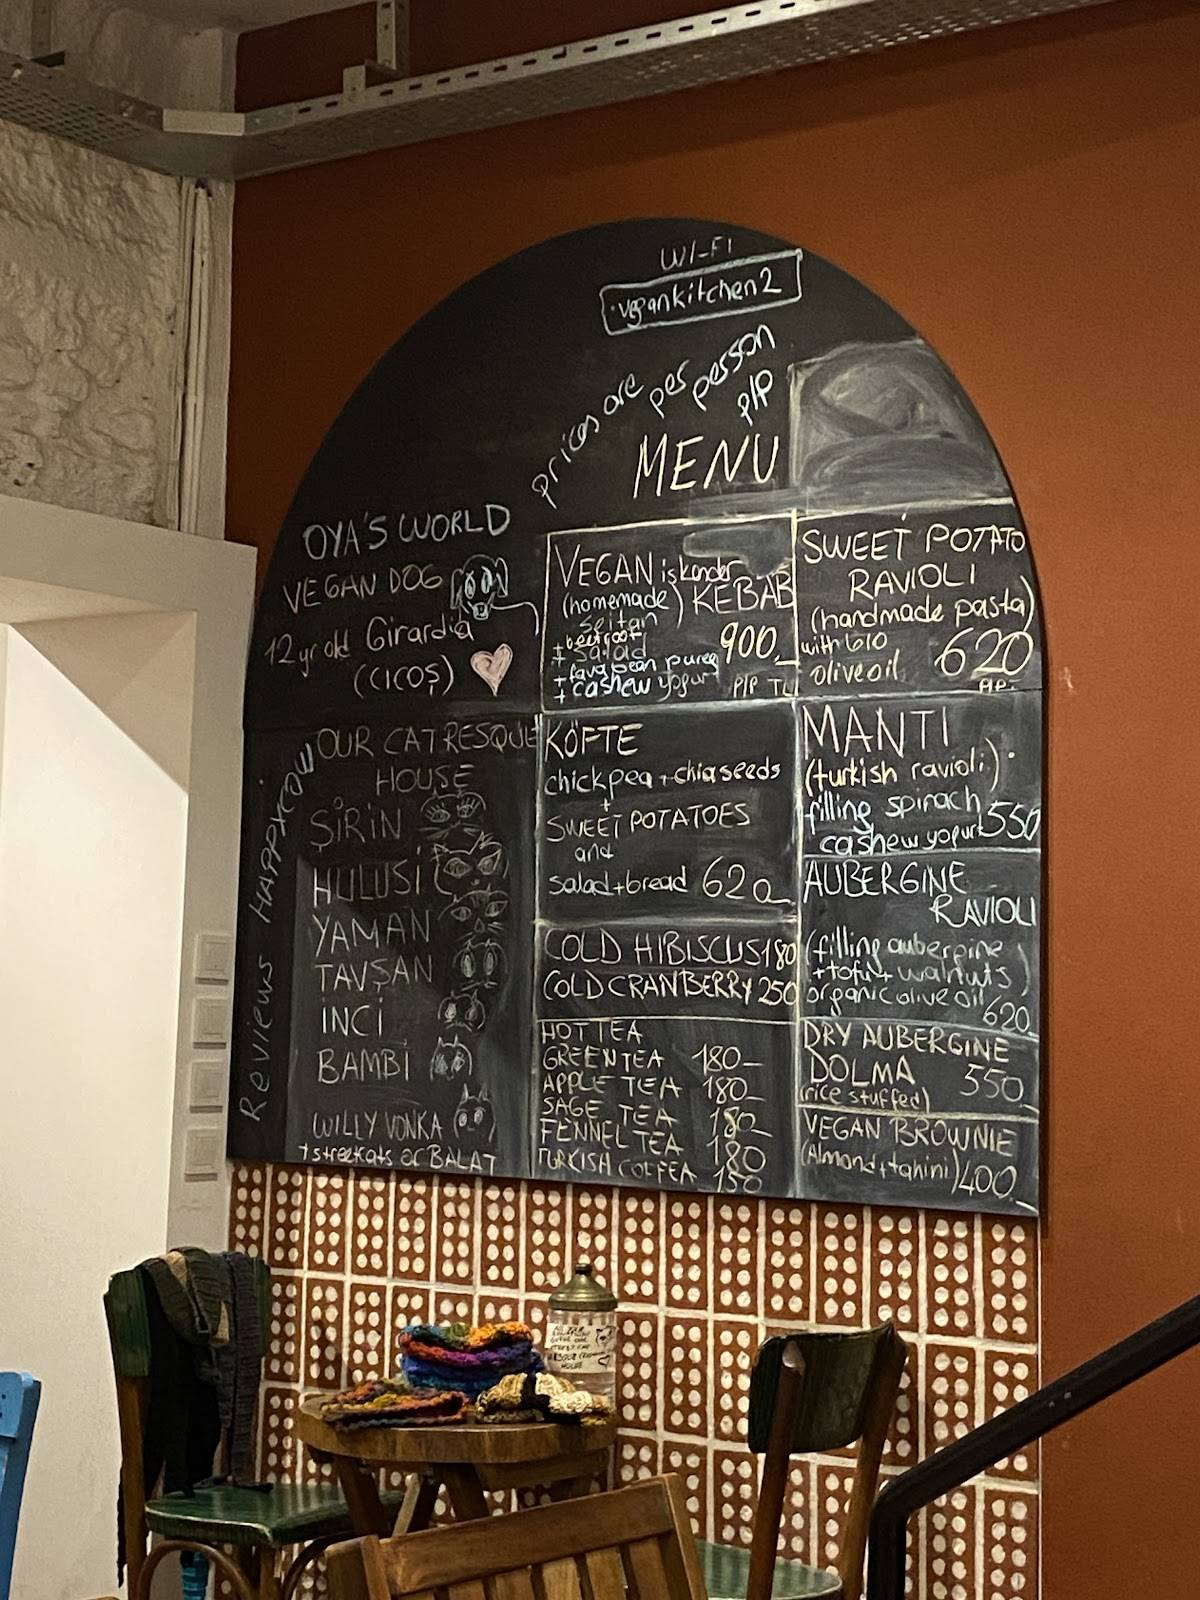 WI-FI
vegankitchen2
prices are per person
P/P
MENU
OYA'S WORLD
VEGAN DOG
12 yr old Girardia
(CICOŞ)
OUR CAT RESQUE
HOUSE
ŞİRİN
HULUSİ
YAMAN
TAVŞAN
İNCİ
BAMBİ
WILLY VONKA
+ streetcats of BALAT
Reviews HAPPYCOW
VEGAN iskender
(homemade) KEBAB
seitan
+ beetroot
+ salad 900
+ fava bean puree
+ cashew yogurt P/P TL
KÖFTE
chickpea + chiaseeds
+
SWEET POTATOES
and
salad + bread 620
COLD HIBISCUS 180
COLD CRANBERRY 250
HOT TEA
GREEN TEA 180
APPLE TEA 180
SAGE TEA 180
FENNEL TEA 180
TURKISH COFFEA 150
SWEET POTATO
RAVIOLI
(handmade pasta)
with bio 620
olive oil
MANTI
(turkish ravioli)
filling spinach 550
cashew yogurt
AUBERGINE
RAVIOLI
(filling aubergine
+ tofu + walnuts)
organic olive oil
620
DRY AUBERGINE
DOLMA 550
(rice stuffed)
VEGAN BROWNIE
(Almond + tahini) 400